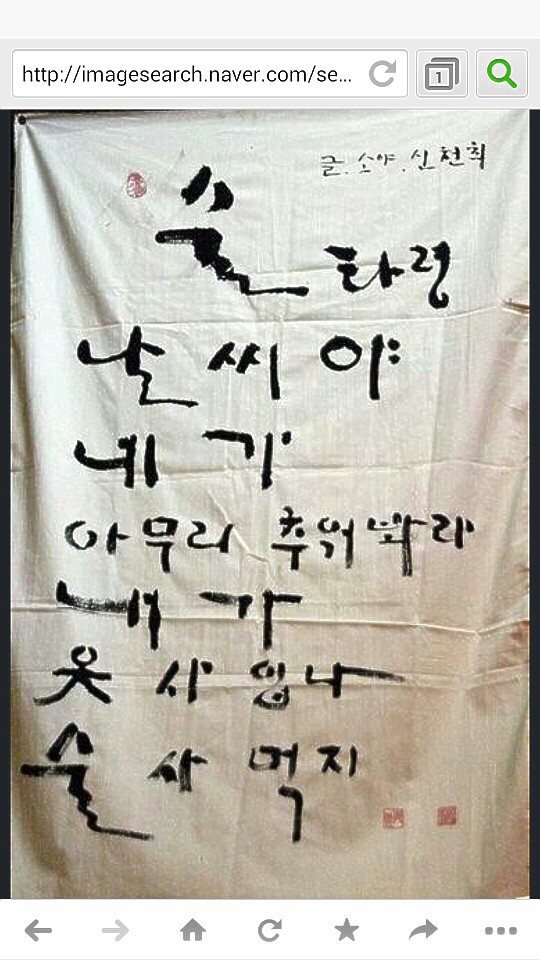 http://imagesearch.naver.com/se...
1
글. 소야. 신천희
술 타령
날씨야
네가
아무리 추워봐라
내가
옷 사 입나
술 사 먹지